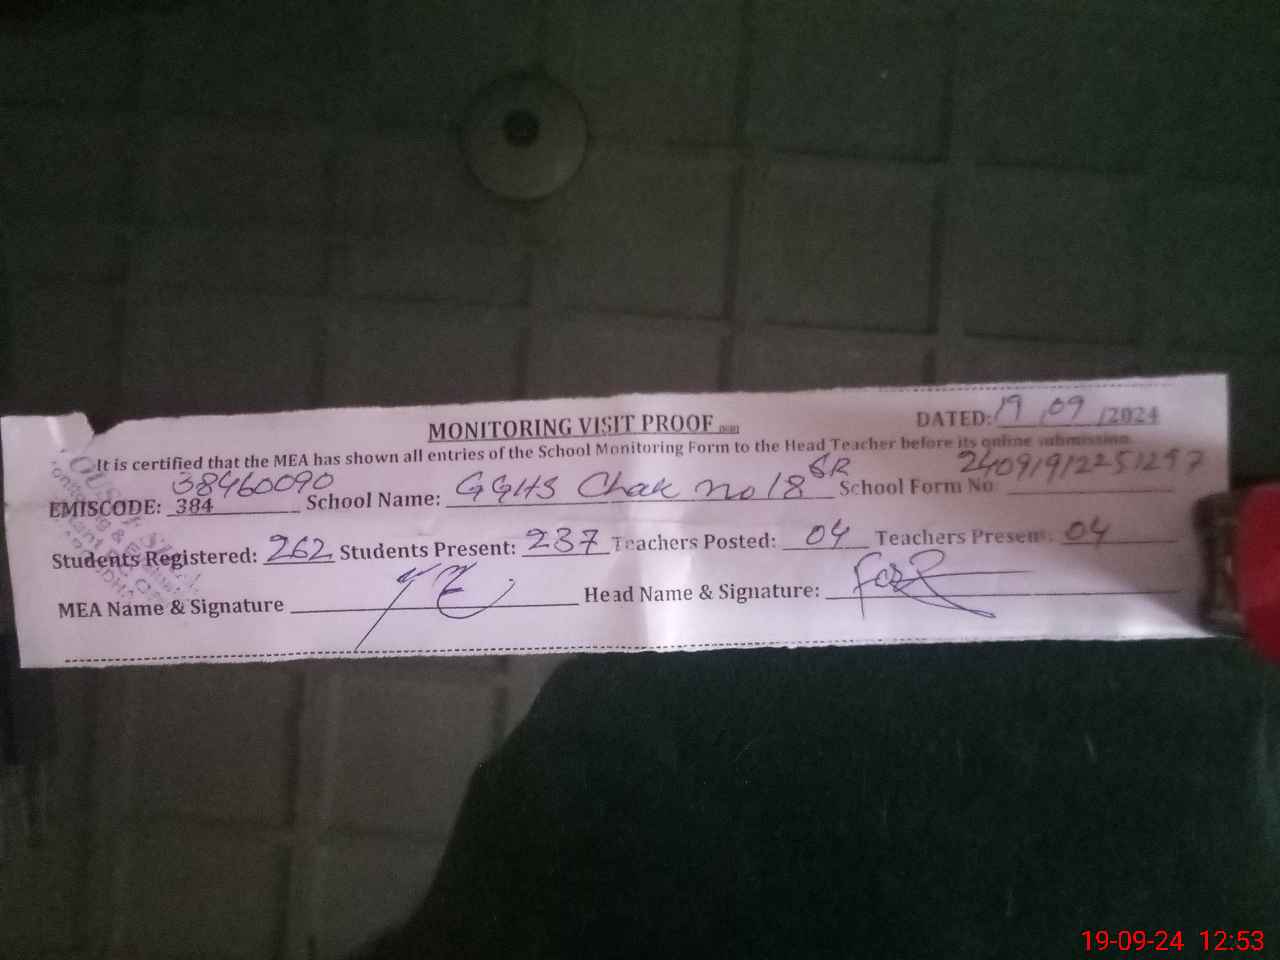 MONITORING VISIT PROOF
DATED: 19/09/2024
It is certified that the MEA has shown all entries of the School Monitoring Form to the Head Teacher before its online submission.
38460090
EMISCODE: 384 School Name: GGHS Chak no 18 SR School Form No 24091912251297
Students Registered: 262 Students Present: 237 Teachers Posted: 04 Teachers Present: 04
MEA Name & Signature Head Name & Signature:
19-09-24 12:53